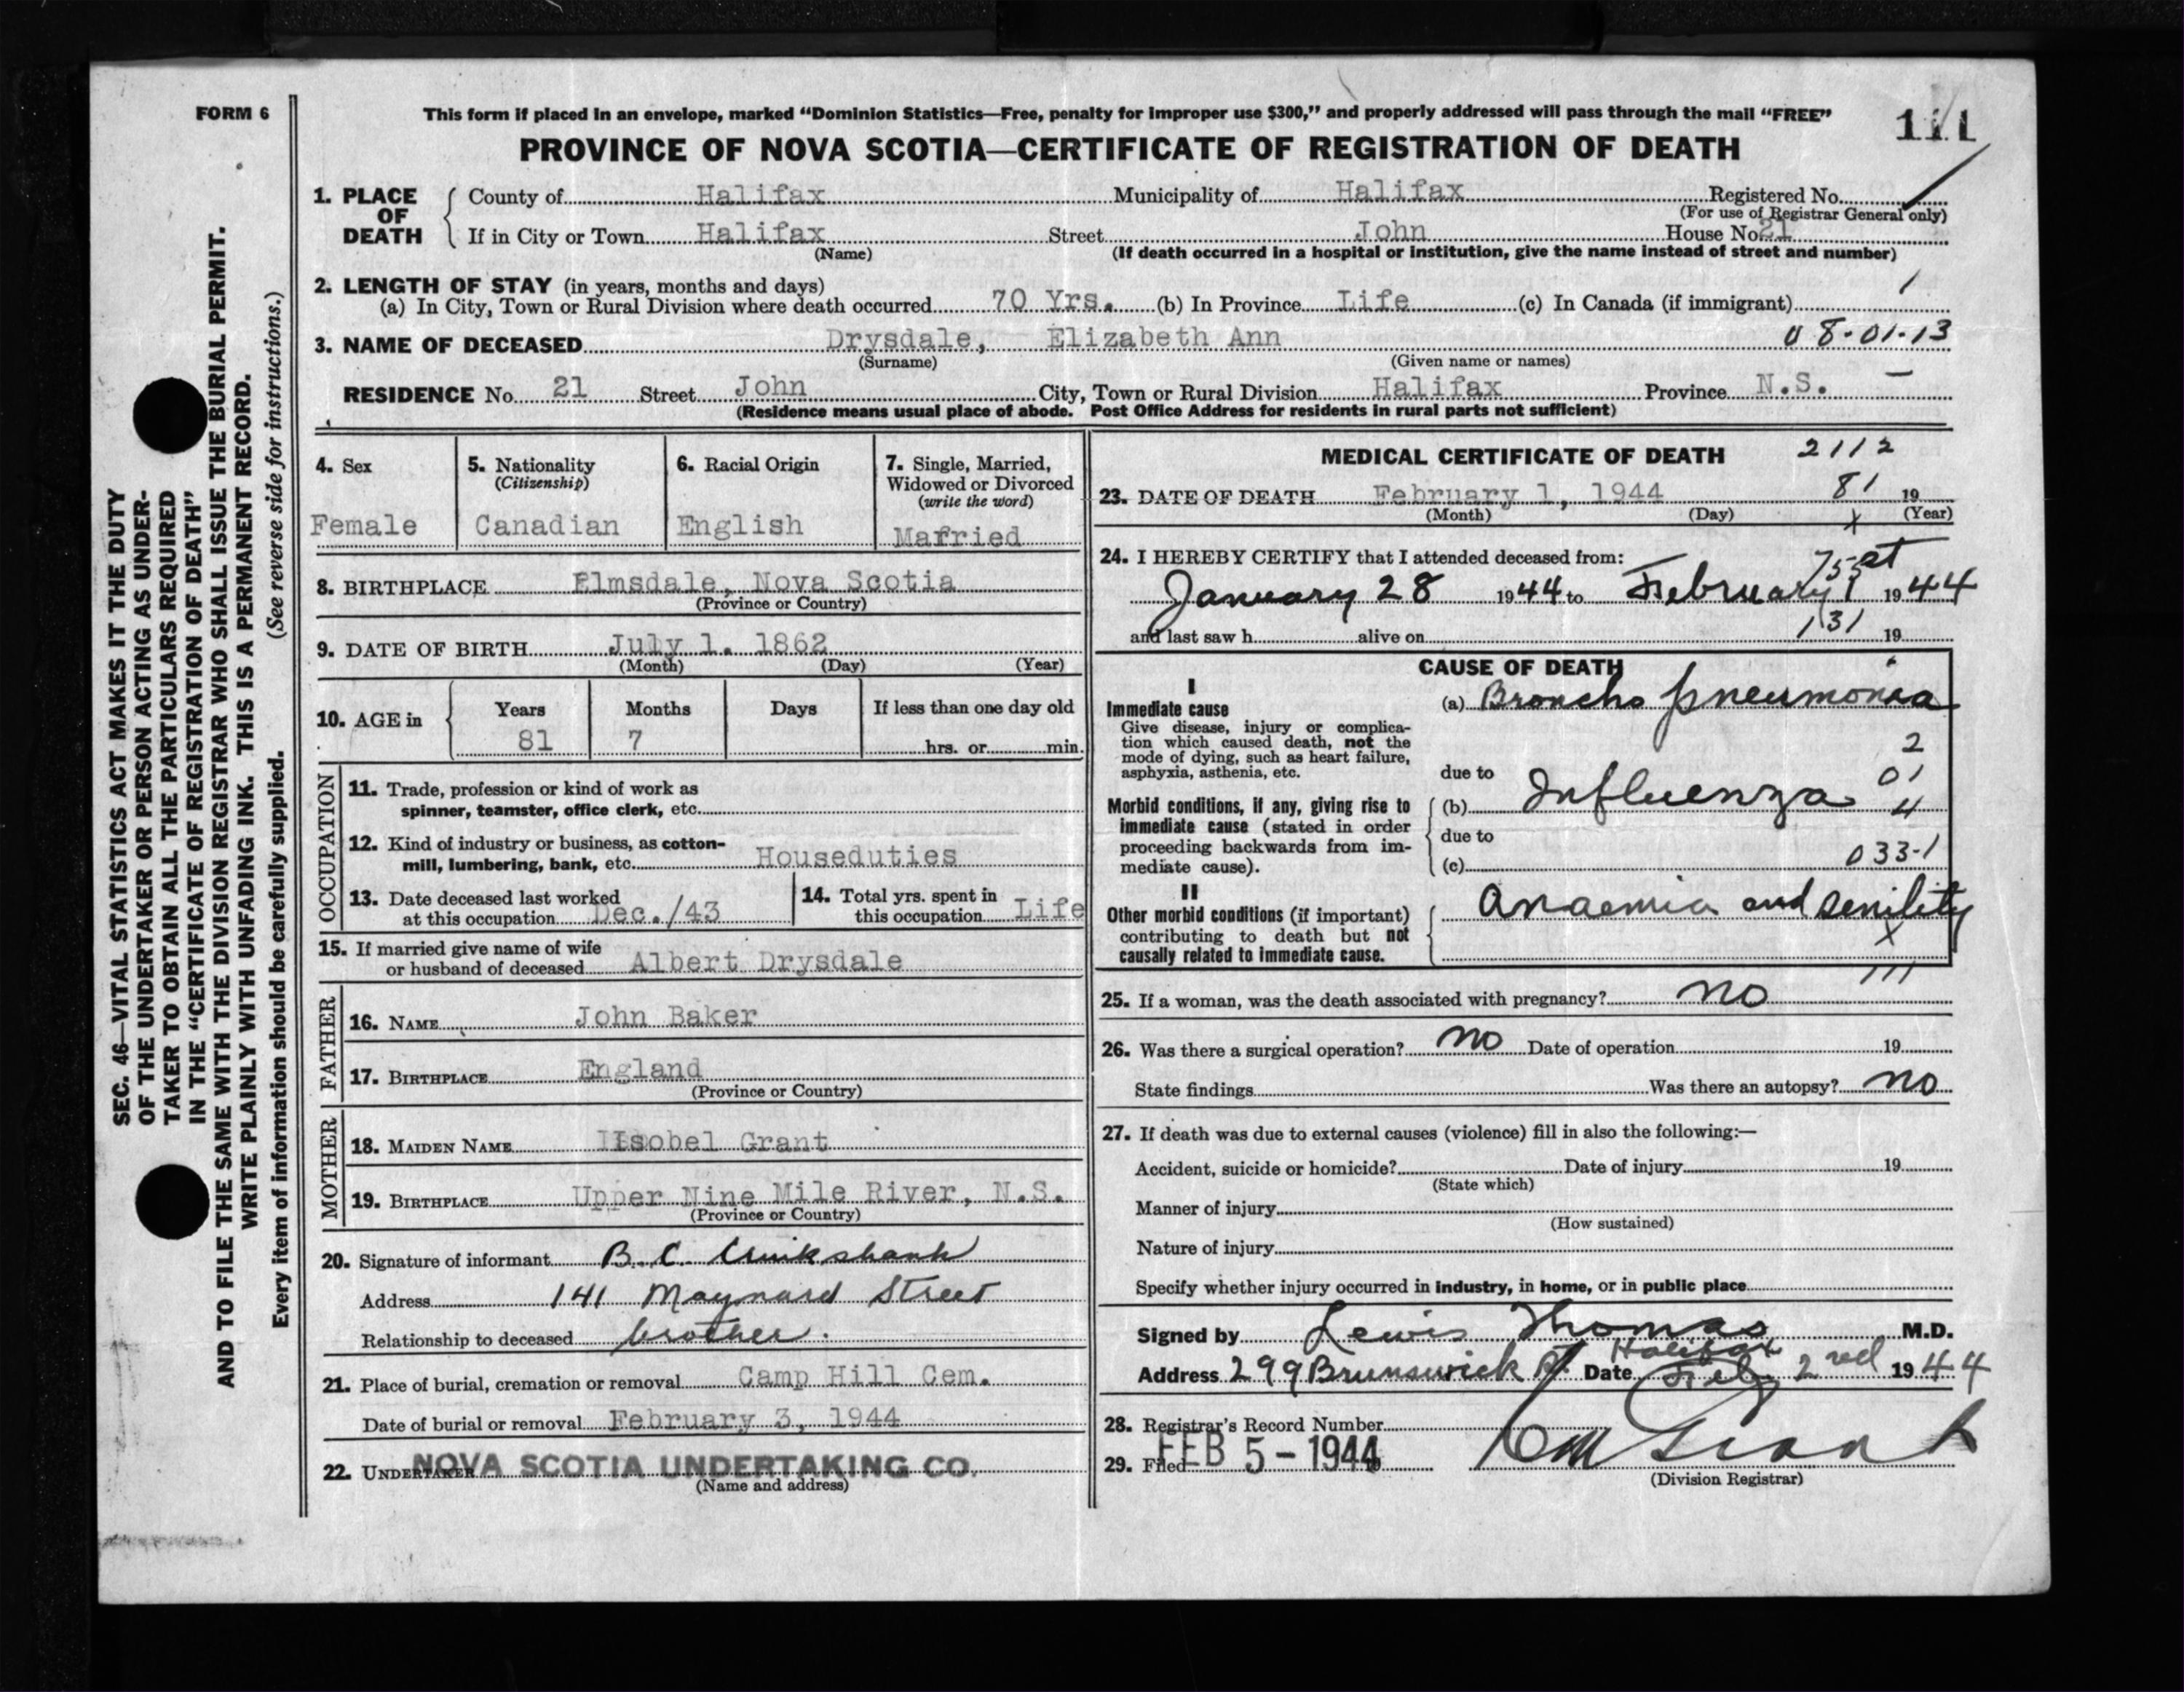 FORM 6
This form if placed in an envelope, marked “Dominion Statistics—Free, penalty for improper use $300,” and properly addressed will pass through the mail “FREE”
PROVINCE OF NOVA SCOTIA—CERTIFICATE OF REGISTRATION OF DEATH
1. PLACE OF DEATH County of Halifax Municipality of Halifax Registered No.
(For use of Registrar General only)
If in City or Town Halifax Street John House No. 21
(Name) (If death occurred in a hospital or institution, give the name instead of street and number)
2. LENGTH OF STAY (in years, months and days)
(a) In City, Town or Rural Division where death occurred 70 Yrs. (b) In Province Life (c) In Canada (if immigrant)
3. NAME OF DECEASED Drysdale, Elizabeth Ann 08-01-13
(Surname) (Given name or names)
RESIDENCE No. 21 Street John City, Town or Rural Division Halifax Province N.S.
(Residence means usual place of abode. Post Office Address for residents in rural parts not sufficient)
4. Sex
Female
5. Nationality
(Citizenship)
Canadian
6. Racial Origin
English
7. Single, Married,
Widowed or Divorced
(write the word)
Married
8. BIRTHPLACE Elmsdale, Nova Scotia
(Province or Country)
9. DATE OF BIRTH July 1. 1862
(Month) (Day) (Year)
10. AGE in Years Months Days If less than one day old
81 7 hrs. or min.
OCCUPATION
11. Trade, profession or kind of work as
spinner, teamster, office clerk, etc.
12. Kind of industry or business, as cotton-
mill, lumbering, bank, etc. Houseduties
13. Date deceased last worked
at this occupation Dec./43
14. Total yrs. spent in
this occupation Life
15. If married give name of wife
or husband of deceased Albert Drysdale
FATHER
16. NAME John Baker
17. BIRTHPLACE England
(Province or Country)
MOTHER
18. MAIDEN NAME Isobel Grant
19. BIRTHPLACE Upper Nine Mile River, N.S.
(Province or Country)
20. Signature of informant B. C. Cruikshank
Address 141 Maynard Street
Relationship to deceased brother.
21. Place of burial, cremation or removal Camp Hill Cem.
Date of burial or removal February 3, 1944
22. UNDERTAKER NOVA SCOTIA UNDERTAKING CO.
(Name and address)
MEDICAL CERTIFICATE OF DEATH 2112
23. DATE OF DEATH February 1, 1944 81 19
(Month) (Day) (Year)
24. I HEREBY CERTIFY that I attended deceased from:
January 28 1944 to February 1st 1944
and last saw h alive on 131 19
CAUSE OF DEATH
I
Immediate cause
Give disease, injury or complica-
tion which caused death, not the
mode of dying, such as heart failure,
asphyxia, asthenia, etc.
(a) Broncho pneumonia
2
due to 01
Morbid conditions, if any, giving rise to
immediate cause (stated in order
proceeding backwards from im-
mediate cause).
(b) Influenza 4
due to
(c) 033-1
II
Other morbid conditions (if important)
contributing to death but not
causally related to immediate cause.
Anaemia and senility
X
111
25. If a woman, was the death associated with pregnancy? no
26. Was there a surgical operation? no Date of operation 19
State findings Was there an autopsy? no
27. If death was due to external causes (violence) fill in also the following:—
Accident, suicide or homicide? Date of injury 19
(State which)
Manner of injury
(How sustained)
Nature of injury
Specify whether injury occurred in industry, in home, or in public place
Signed by Lewis Thomas M.D.
Halifax
Address 299 Brunswick St Date Feb 2nd 1944
28. Registrar's Record Number
29. Filed FEB 5-1944
(Division Registrar)
SEC. 46—VITAL STATISTICS ACT MAKES IT THE DUTY
OF THE UNDERTAKER OR PERSON ACTING AS UNDER-
TAKER TO OBTAIN ALL THE PARTICULARS REQUIRED
IN THE “CERTIFICATE OF REGISTRATION OF DEATH”
AND TO FILE THE SAME WITH THE DIVISION REGISTRAR WHO SHALL ISSUE THE BURIAL PERMIT.
WRITE PLAINLY WITH UNFADING INK. THIS IS A PERMANENT RECORD.
Every item of information should be carefully supplied. (See reverse side for instructions.)